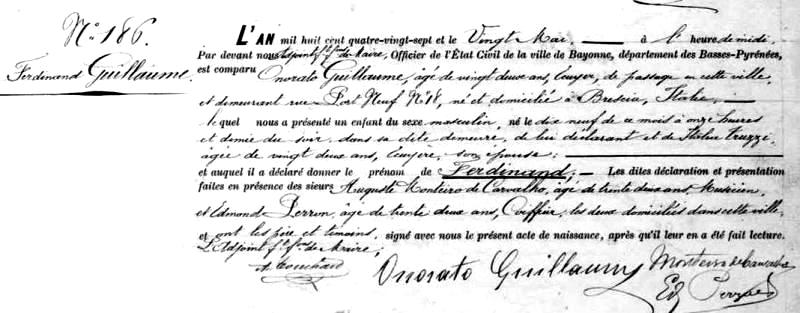 N° 186.
Ferdinand Guillaume.
L'AN mil huit cent quatre-vingt-sept et le Vingt Mai à l' heure de midi
Par devant nous Adjoint f.f. de Maire, Officier de l'État Civil de la ville de Bayonne, département des Basses-Pyrénées,
est comparu Onorato Guillaume, âgé de vingt deux ans, Ecuyer, de passage en cette ville,
et demeurant rue Port Neuf N° 18, né et domicilié à Brescia, Italie,
lequel nous a présenté un enfant du sexe masculin, né le dix neuf de ce mois à onze heures
et demie du soir, dans sa dite demeure, de lui déclarant et de Italia Truzzi,
âgée de vingt deux ans, Ecuyère, son épouse;
et auquel il a déclaré donner le prénom de Ferdinand, — Les dites déclaration et présentation
faites en présence des sieurs Auguste Monteiro de Carvalho, âgé de trente deux ans, Musicien,
et Edmond Perron, âgé de trente deux ans, Coiffeur, les deux domiciliés dans cette ville,
et ont les père et témoins, signé avec nous le présent acte de naissance, après qu'il leur en a été fait lecture.
L'Adjoint f.f. de Maire;
Onorato Guillaume Monteiro de Carvalho
Ed Perron